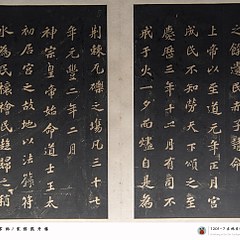 之餘邊民赤子
上帝以至道元年正月宮
成民不知勞天下頌之至
慶曆三年十二月有司不
戒于火一夕而燼自是為
荊棘瓦礫之場凡三十七
年元豐二年二月
神宗皇帝始命道士王太
初居宮之故地以法籙符
水為民禳禬民趨歸之稍